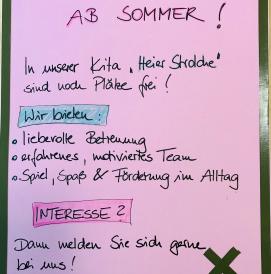 AB SOMMER!
In unserer Kita „Heier Strolche"
sind noch Plätze frei!
Wir bieten:
• liebevolle Betreuung
• erfahrenes, motiviertes Team
• Spiel, Spaß & Förderung im Alltag
INTERESSE?
Dann melden Sie sich gerne
bei uns!